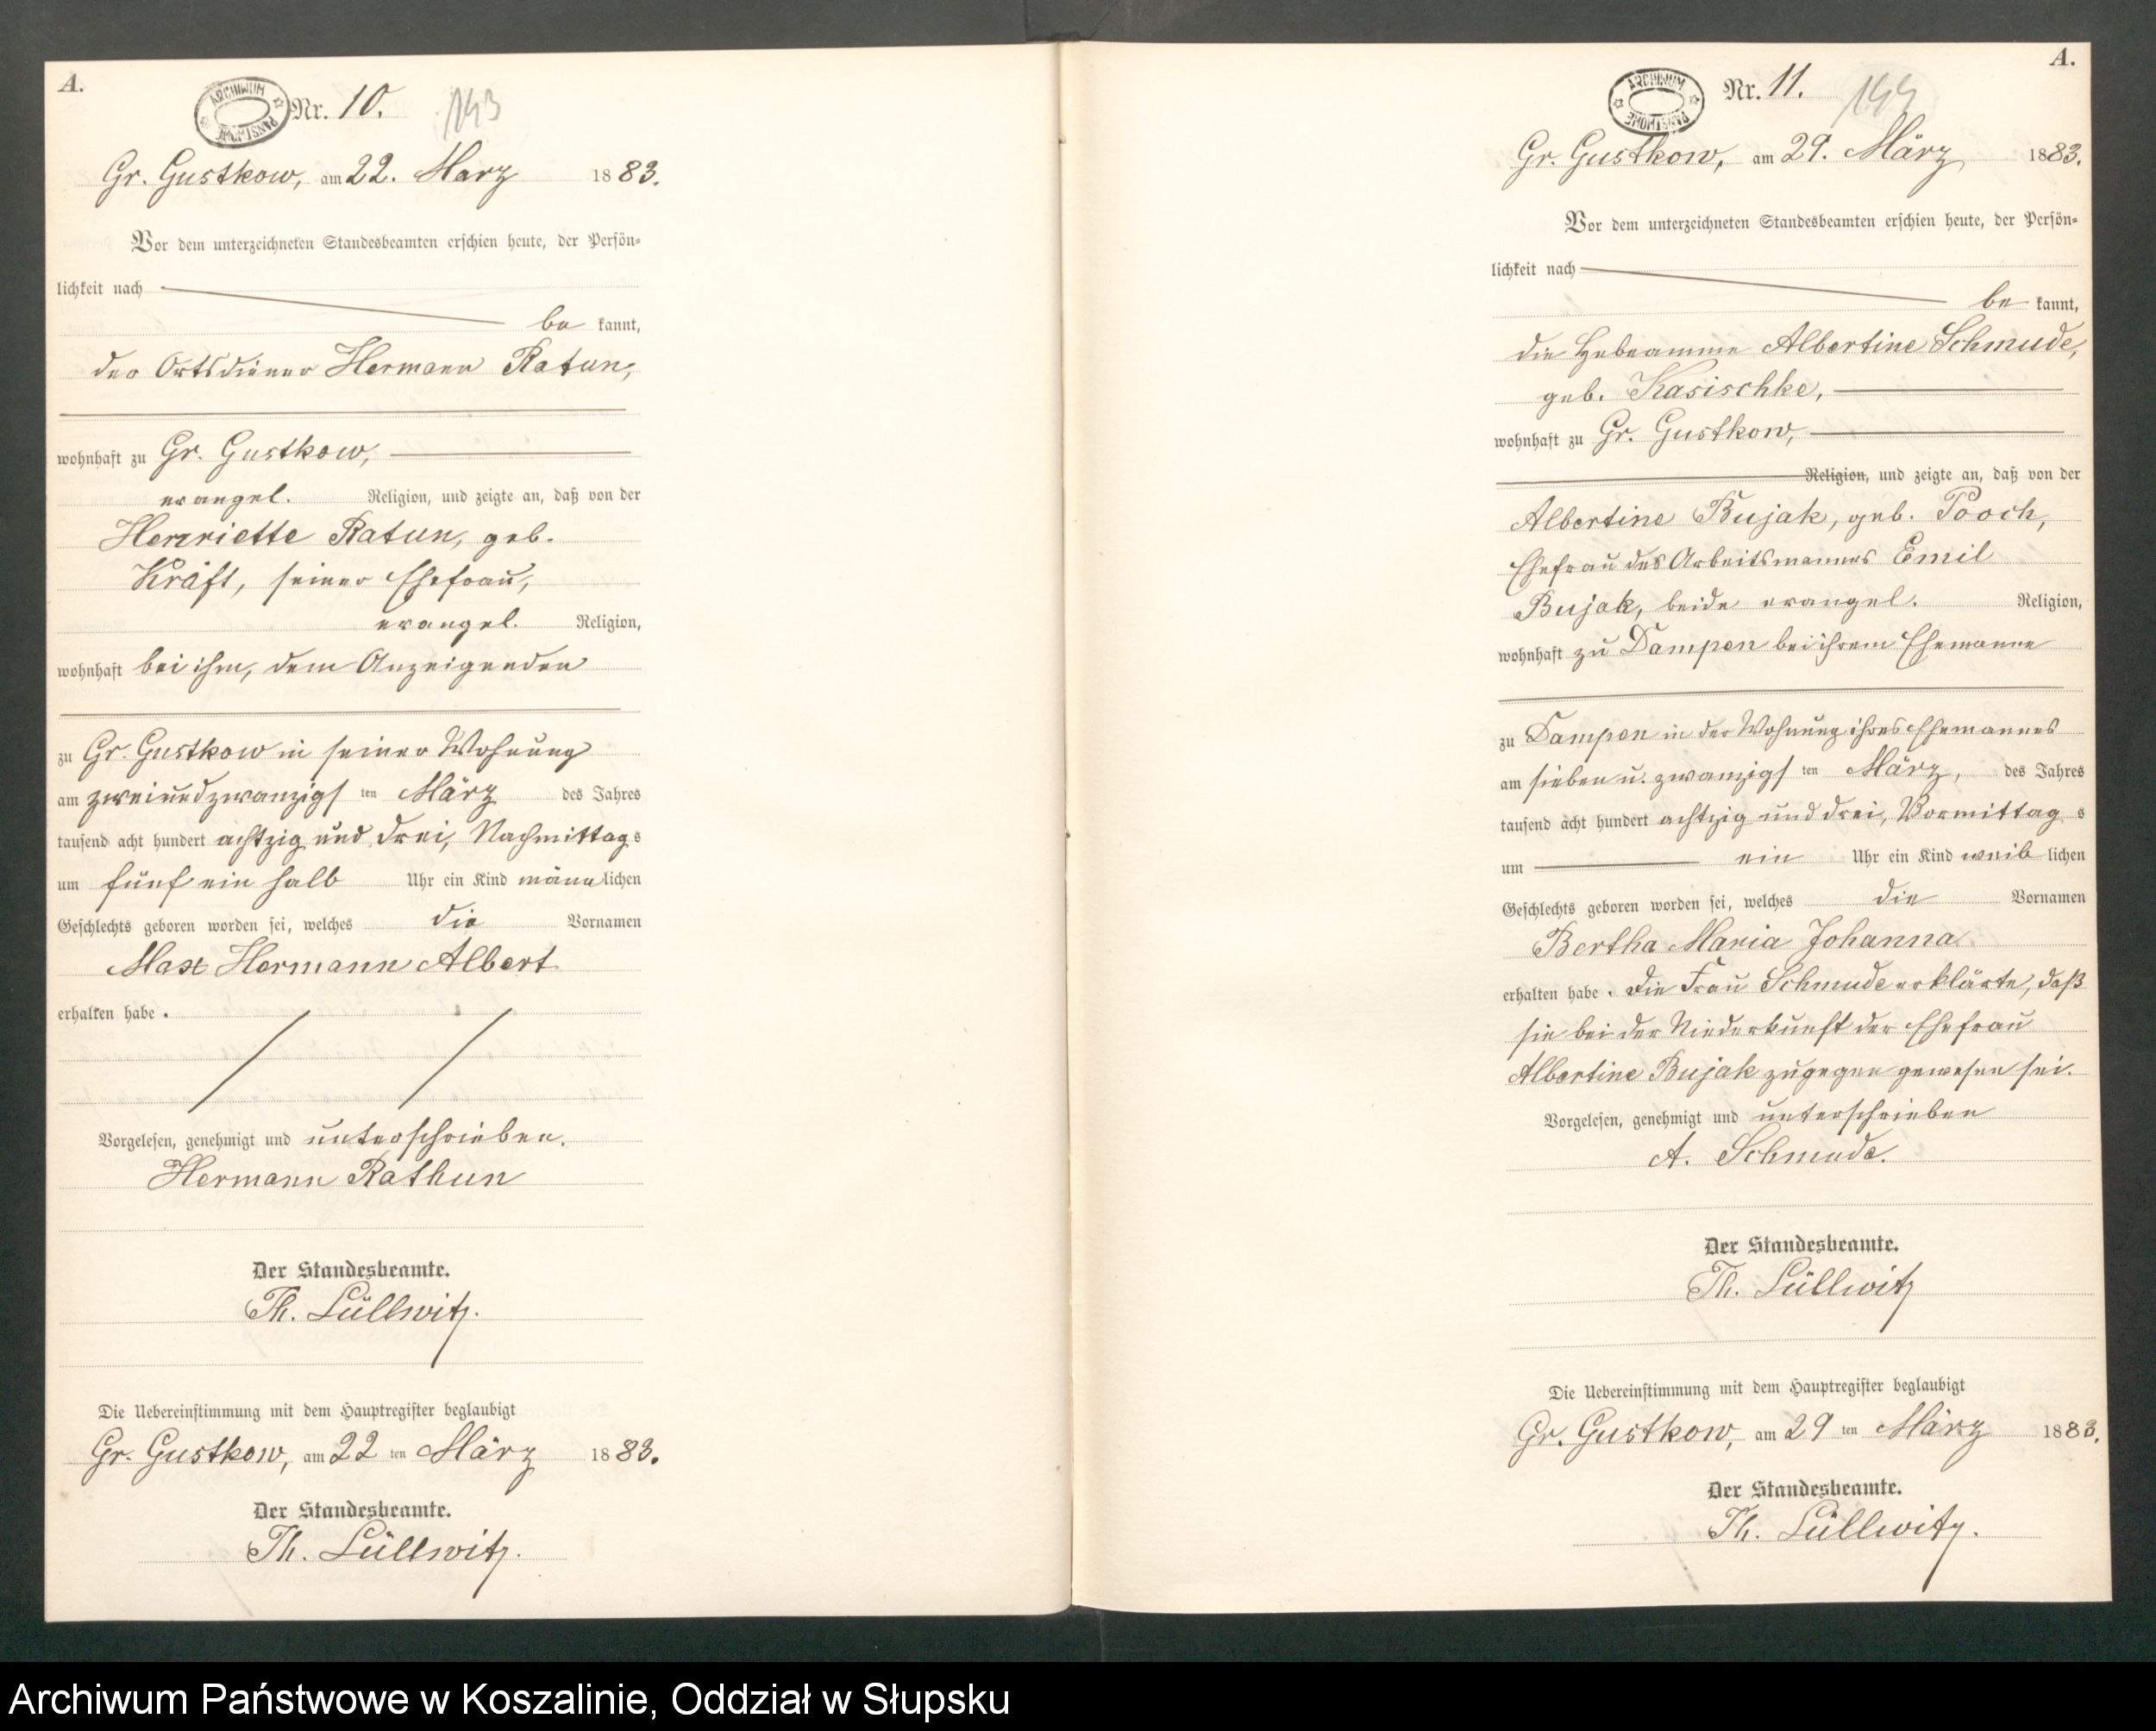 A.
ARCHIWUM PAŃSTWOWE
Nr. 10.
143
Gr. Gustkow, am 22. Marz 1883.
Vor dem unterzeichneten Standesbeamten erschien heute, der Persön-
lichkeit nach
be kannt,
der Ortsdiener Hermann Ratun,
wohnhaft zu Gr. Gustkow,
evangel. Religion, und zeigte an, daß von der
Henriette Ratun, geb.
Kräft, seiner Ehefrau,
evangel. Religion,
wohnhaft bei ihm, dem Anzeigenden
zu Gr. Gustkow in seiner Wohnung
am zweiundzwanzigs ten März des Jahres
tausend acht hundert achtzig und drei, Nachmittags
um fünf ein halb Uhr ein Kind männlichen
Geschlechts geboren worden sei, welches die Vornamen
Max Hermann Albert
erhalten habe.
Vorgelesen, genehmigt und unterschrieben.
Hermann Rathun
Der Standesbeamte.
Th. Lüllwitz.
Die Uebereinstimmung mit dem Hauptregister beglaubigt
Gr. Gustkow, am 22 ten März 1883.
Der Standesbeamte.
Th. Lüllwitz.
A.
ARCHIWUM PAŃSTWOWE
Nr. 11.
144
Gr. Gustkow, am 29. März 1883.
Vor dem unterzeichneten Standesbeamten erschien heute, der Persön-
lichkeit nach
be kannt,
die Hebeamme Albertine Schmude,
geb. Kasischke,
wohnhaft zu Gr. Gustkow,
Religion, und zeigte an, daß von der
Albertine Bujak, geb. Pooch,
Ehefrau des Arbeitsmannes Emil
Bujak, beide evangel. Religion,
wohnhaft zu Dampen bei ihrem Ehemanne
zu Dampen in der Wohnung ihres Ehemannes
am sieben u. zwanzigs ten März, des Jahres
tausend acht hundert achtzig und drei, Vormittags
um ein Uhr ein Kind weiblichen
Geschlechts geboren worden sei, welches die Vornamen
Bertha Maria Johanna
erhalten habe. Die Frau Schmude erklärte, daß
sie bei der Niederkunft der Ehefrau
Albertine Bujak zugegen gewesen sei.
Vorgelesen, genehmigt und unterschrieben
A. Schmude.
Der Standesbeamte.
Th. Lüllwitz
Die Uebereinstimmung mit dem Hauptregister beglaubigt
Gr. Gustkow, am 29 ten März 1883.
Der Standesbeamte.
Th. Lüllwitz.
Archiwum Państwowe w Koszalinie, Oddział w Słupsku